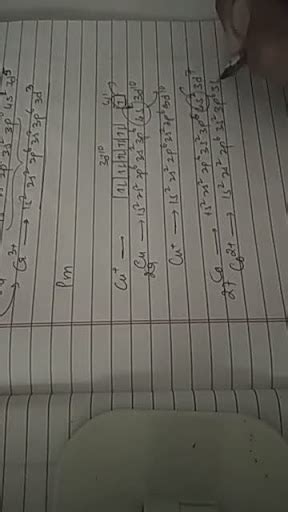 1s² 2s² 2p⁶ 3s² 3p⁶ 4s¹ 3d⁵
Cr³⁺ → 1s² 2s² 2p⁶ 3s² 3p⁶ 3d³
Pm
3d¹⁰ 4s¹
Cu⁺ →
₂₉Cu → 1s² 2s² 2p⁶ 3s² 3p⁶ 4s¹ 3d¹⁰
Cu⁺ → 1s² 2s² 2p⁶ 3s² 3p⁶ 3d¹⁰
₂₇Co → 1s² 2s² 2p⁶ 3s² 3p⁶ 4s² 3d⁷
Co²⁺ → 1s² 2s² 2p⁶ 3s² 3p⁶